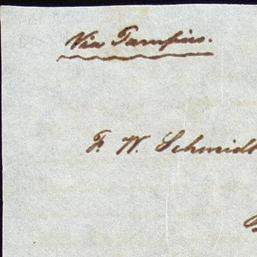 Via Tampico.
F. W. Schmidt